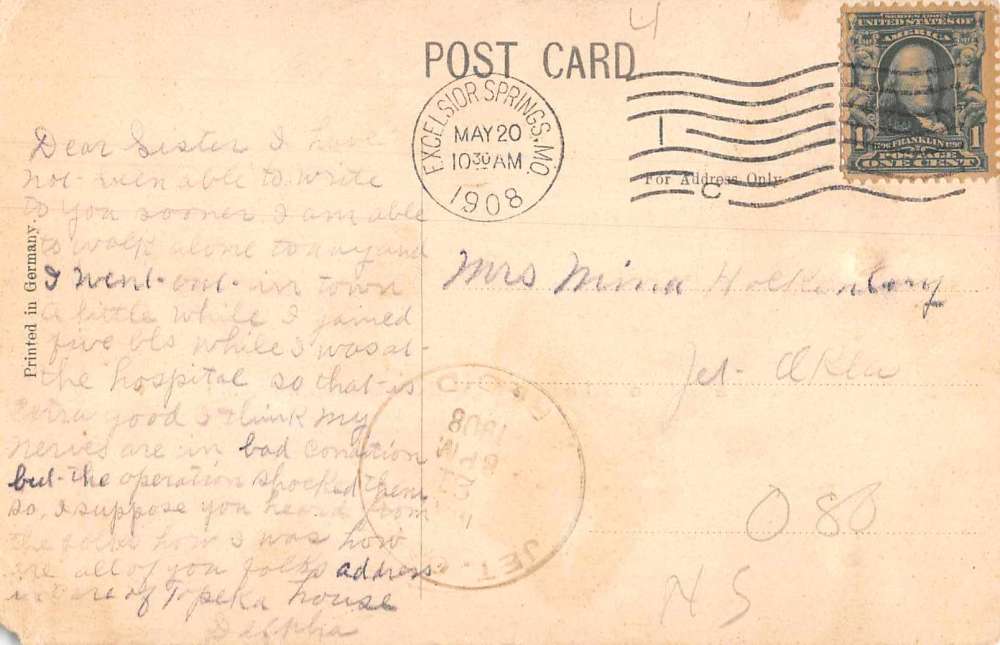 4
POST CARD
SERIES 1902
UNITED STATES OF
AMERICA
1 1
FRANKLIN
POSTAGE
ONE CENT
EXCELSIOR SPRINGS, MO.
MAY 20
10 30 AM
1908
1
C
For Address Only.
Printed in Germany.
Dear Sister I have
not been able to write
to you sooner I am able
to walk alone today and
I went out in town
a little while I gained
five lbs while I was at
the hospital so that is
extra good I think my
nerves are in bad condition
but the operation shocked them
so, I suppose you heard from
the folks how I was how
are all of you folks address
in care of Topeka house
Delphia
Mrs Minna
Jet Okla
JET.
6 PM
1908
O 80
N S